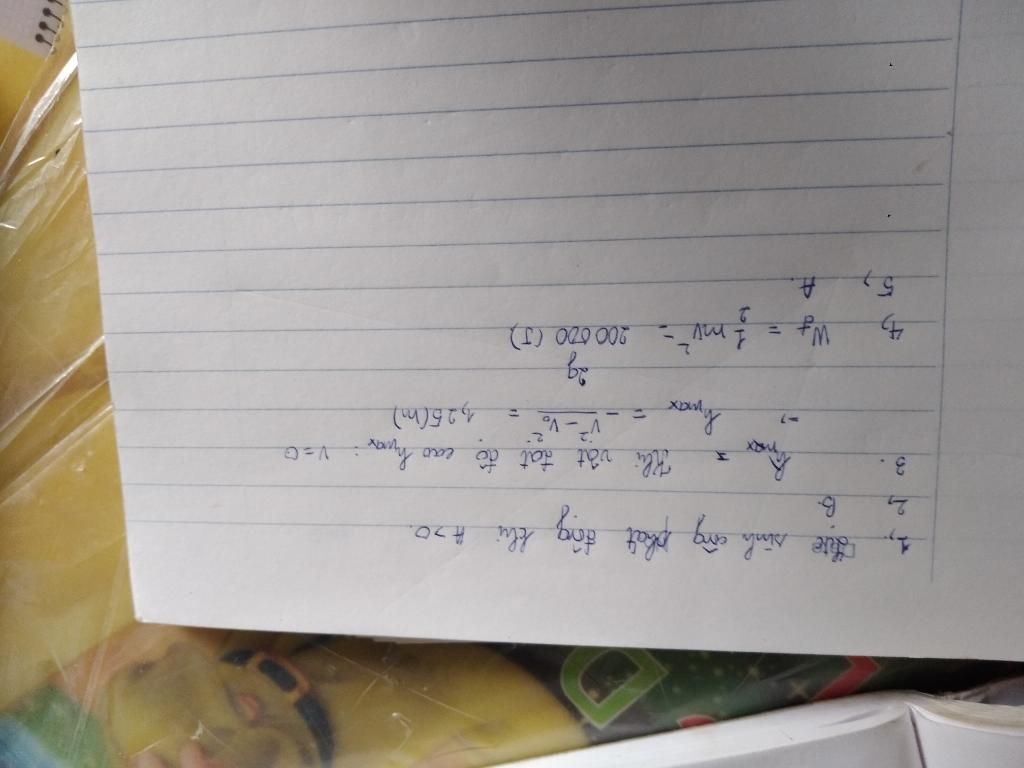 1, Lực sinh công phát động khi A > 0.
2, B
3. hmax = Khi vật đạt độ cao hmax : v = 0
→ hmax = - (v² - v₀²) / 2g = 1,25 (m)
4, Wđ = 1/2 mv² = 200 000 (J)
5, A.